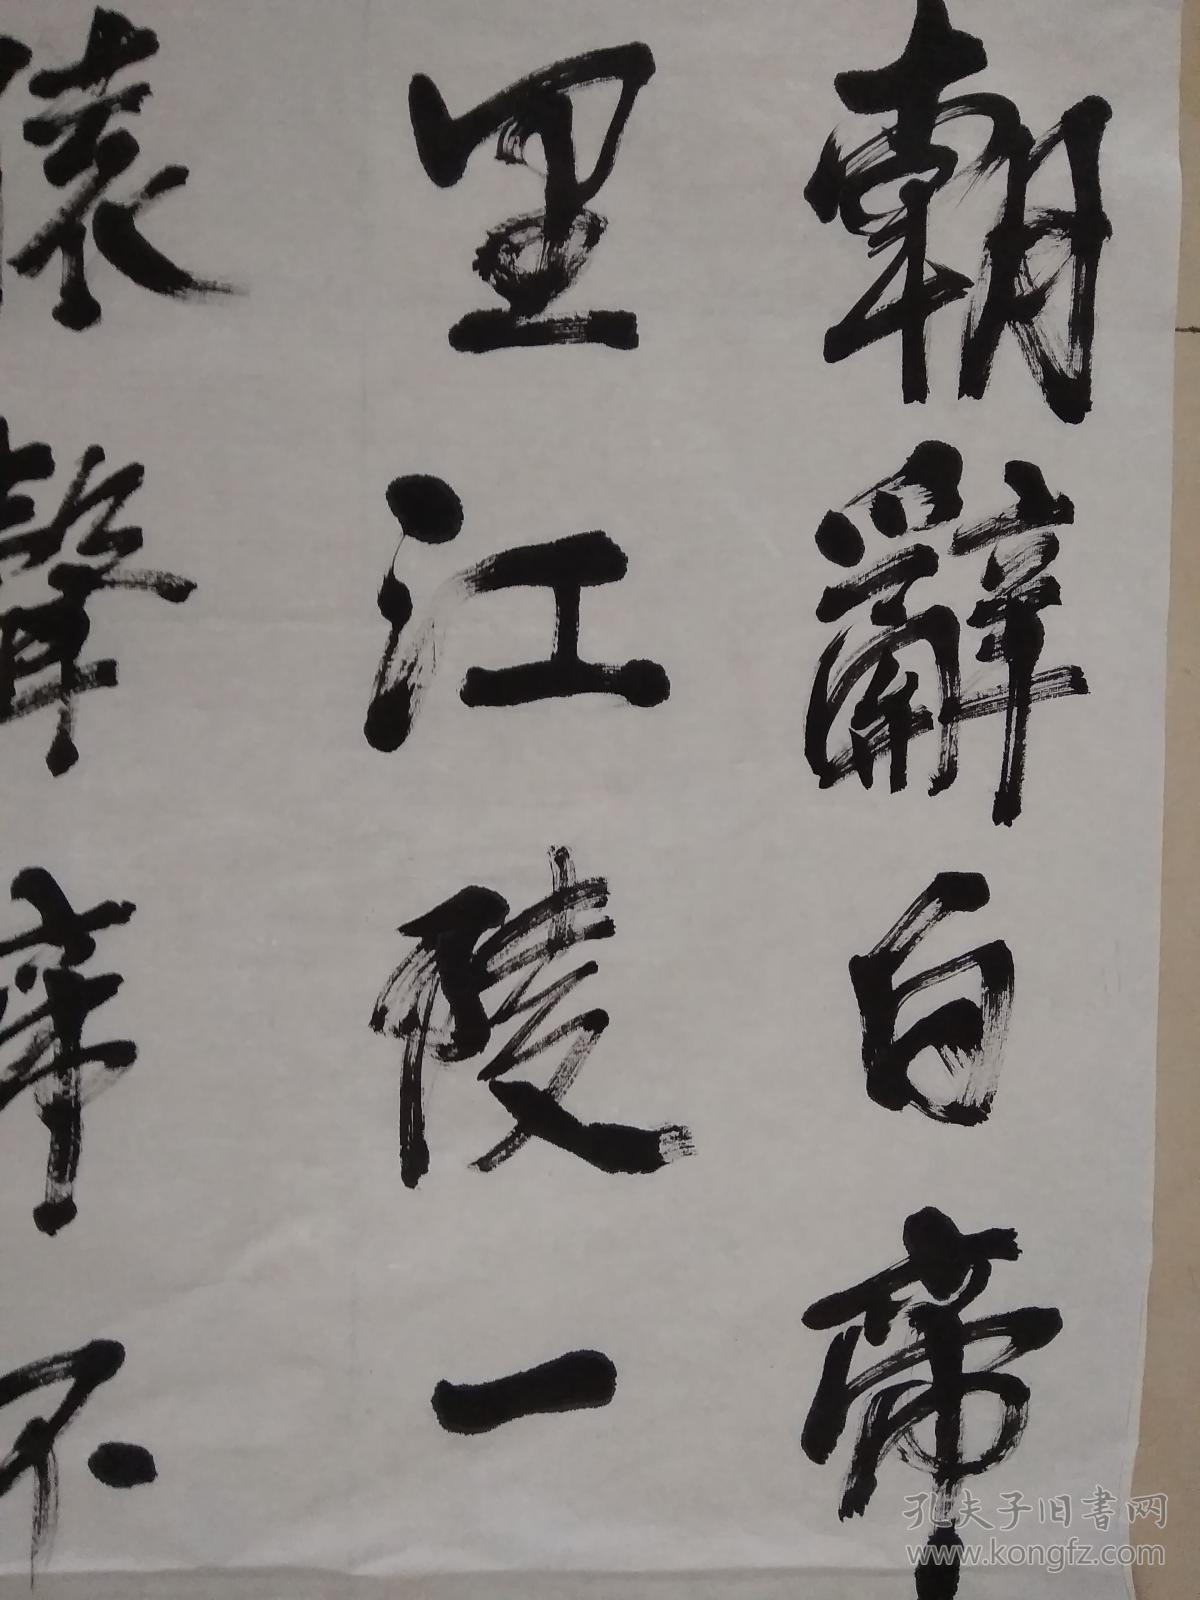 朝辭白帝
里江陵一
猿聲啼不
孔夫子旧書网
www.kongfz.com